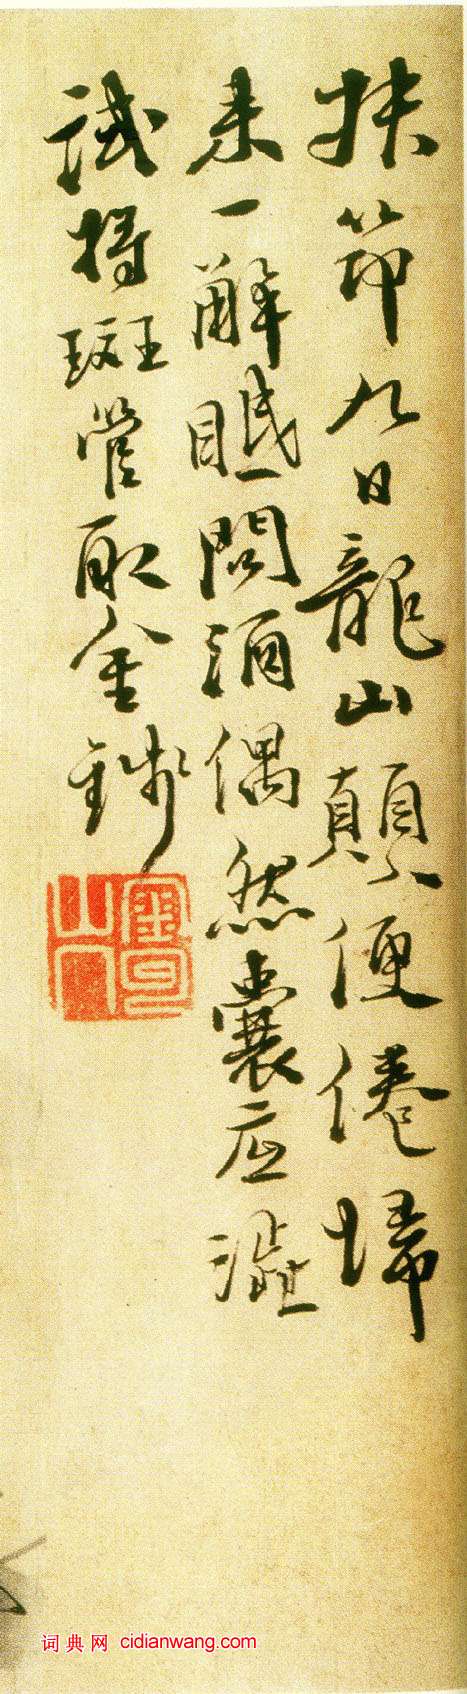 扶筇九日龍山顛便倦歸
來一解眠問酒偶然囊底澀
試將斑管取金錢
金回山人
词典网 cidianwang.com